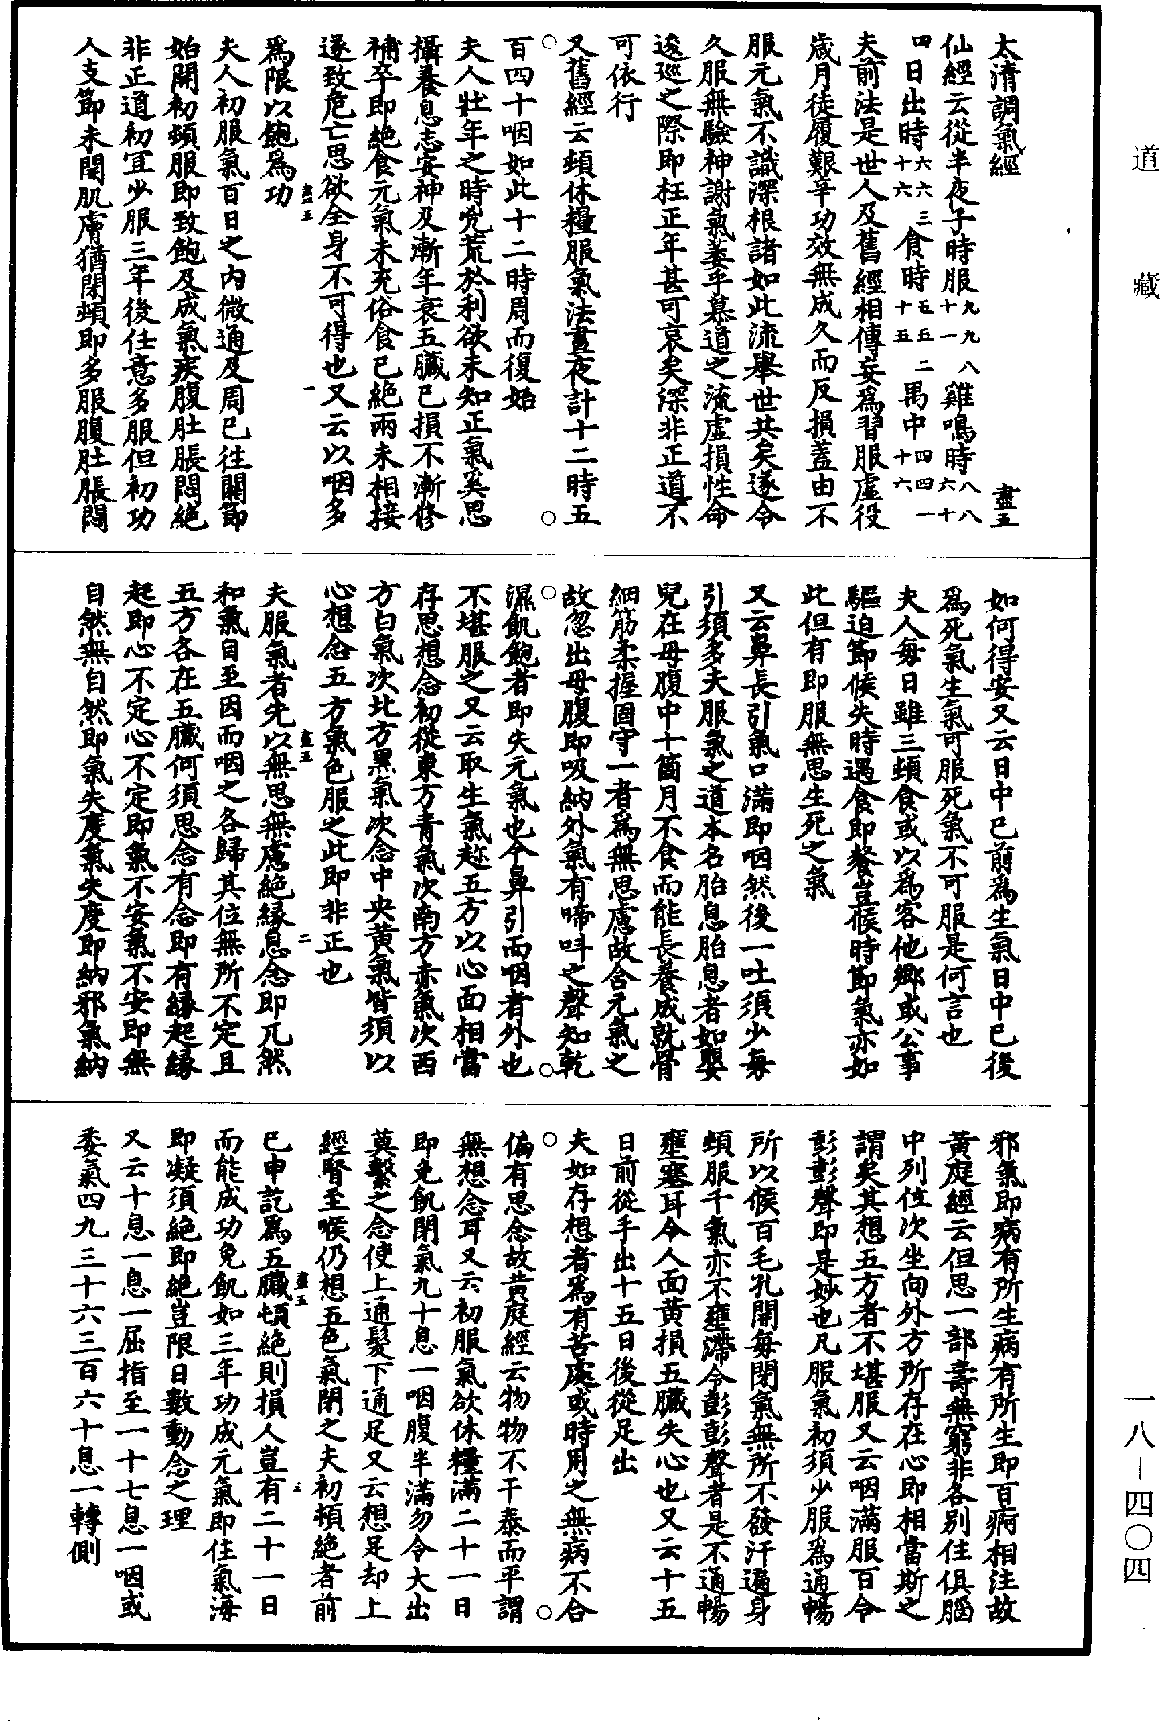 道藏
太清調氣經　盡五
仙經云從半夜子時服九九八十一雞鳴時八八六十
四日出時六六三十六食時五五二十五禺中四四一十六
夫前法是世人及舊經相傳妄爲習服虛役
歲月徒履艱辛功效無成久而反損蓋由不
服元氣不識深根諸如此流舉世共矣遂令
久服無驗神謝氣萎乎慕道之流虛損性命
逡巡之際即枉正年甚可哀矣深非正道不
可依行
又舊經云頓休糧服氣法晝夜計十二時五
百四十咽如此十二時周而復始
夫人壯年之時兇荒於利欲未知正氣奚思
攝養息志安神及漸年衰五臟已損不漸修
補卒即絕食元氣未充俗食已絕兩未相接
遂致危亡思欲全身不可得也又云以咽多
爲限以飽爲功
盡五　一
夫人初服氣百日之內微通及周已往關節
始開初頓服即致飽及成氣疾腹肚脹悶絕
非正道初宜少服三年後任意多服但初功
人支節未開肌膚猶閉頓即多服腹肚脹悶
如何得安又云日中已前爲生氣日中已後
爲死氣生氣可服死氣不可服是何言也
夫人每日雖三頓食或以爲客他鄉或公事
驅迫節候失時遇食即餐豈候時節氣亦如
此但有即服無思生死之氣
又云鼻長引氣口滿即咽然後一吐須少每
引須多夫服氣之道本名胎息胎息者如嬰
兒在母腹中十箇月不食而能長養成就骨
細筋柔握固守一者爲無思慮故含元氣之
故忽出母腹即吸納外氣有啼叫之聲知乾
濕飢飽者即失元氣也今鼻引而咽者外也
不堪服之又云取生氣趂五方以心面相當
存思想念初從東方青氣次南方赤氣次西
方白氣次北方黑氣次念中央黃氣皆須以
心想念五方氣色服之此即非正也
盡五　二
夫服氣者先以無思無慮絕緣息念即兀然
和氣自至因而咽之各歸其位無所不定且
五方各在五臟何須思念有念即有緣起緣
起即心不定心不定即氣不安氣不安即無
自然無自然即氣失度氣失度即納邪氣納
邪氣即病有所生病有所生即百病相注故
黃庭經云但思一部壽無窮非各別住俱腦
中列位次坐向外方所存在心即相當斯之
謂矣其想五方者不堪服又云咽滿服百令
彭彭聲即是妙也凡服氣初須少服爲通暢
所以候百毛孔開每閉氣無所不發汗遍身
頓服千氣亦不壅滯令彭彭聲者是不通暢
壅塞耳令人面黃損五臟失心也又云十五
日前從手出十五日後從足出
夫如存想者爲有苦處或時用之無病不合
偏有思念故黃庭經云物物不干泰而平謂
無想念耳又云初服氣欲休糧滿二十一日
即免飢閉氣九十息一咽腹半滿勿令大出
莫繫之念使上通髮下通足又云想足却上
經腎至喉仍想五色氣閉之夫初頓絕者前
已申訖爲五臟頓絕則損人豈有二十一日
盡五　三
而能成功免飢如三年功成元氣即住氣海
即凝須絕即絕豈限日數動念之理
又云十息一息一屈指至一十七息一咽或
委氣四九三十六三百六十息一轉側
一八—四〇四